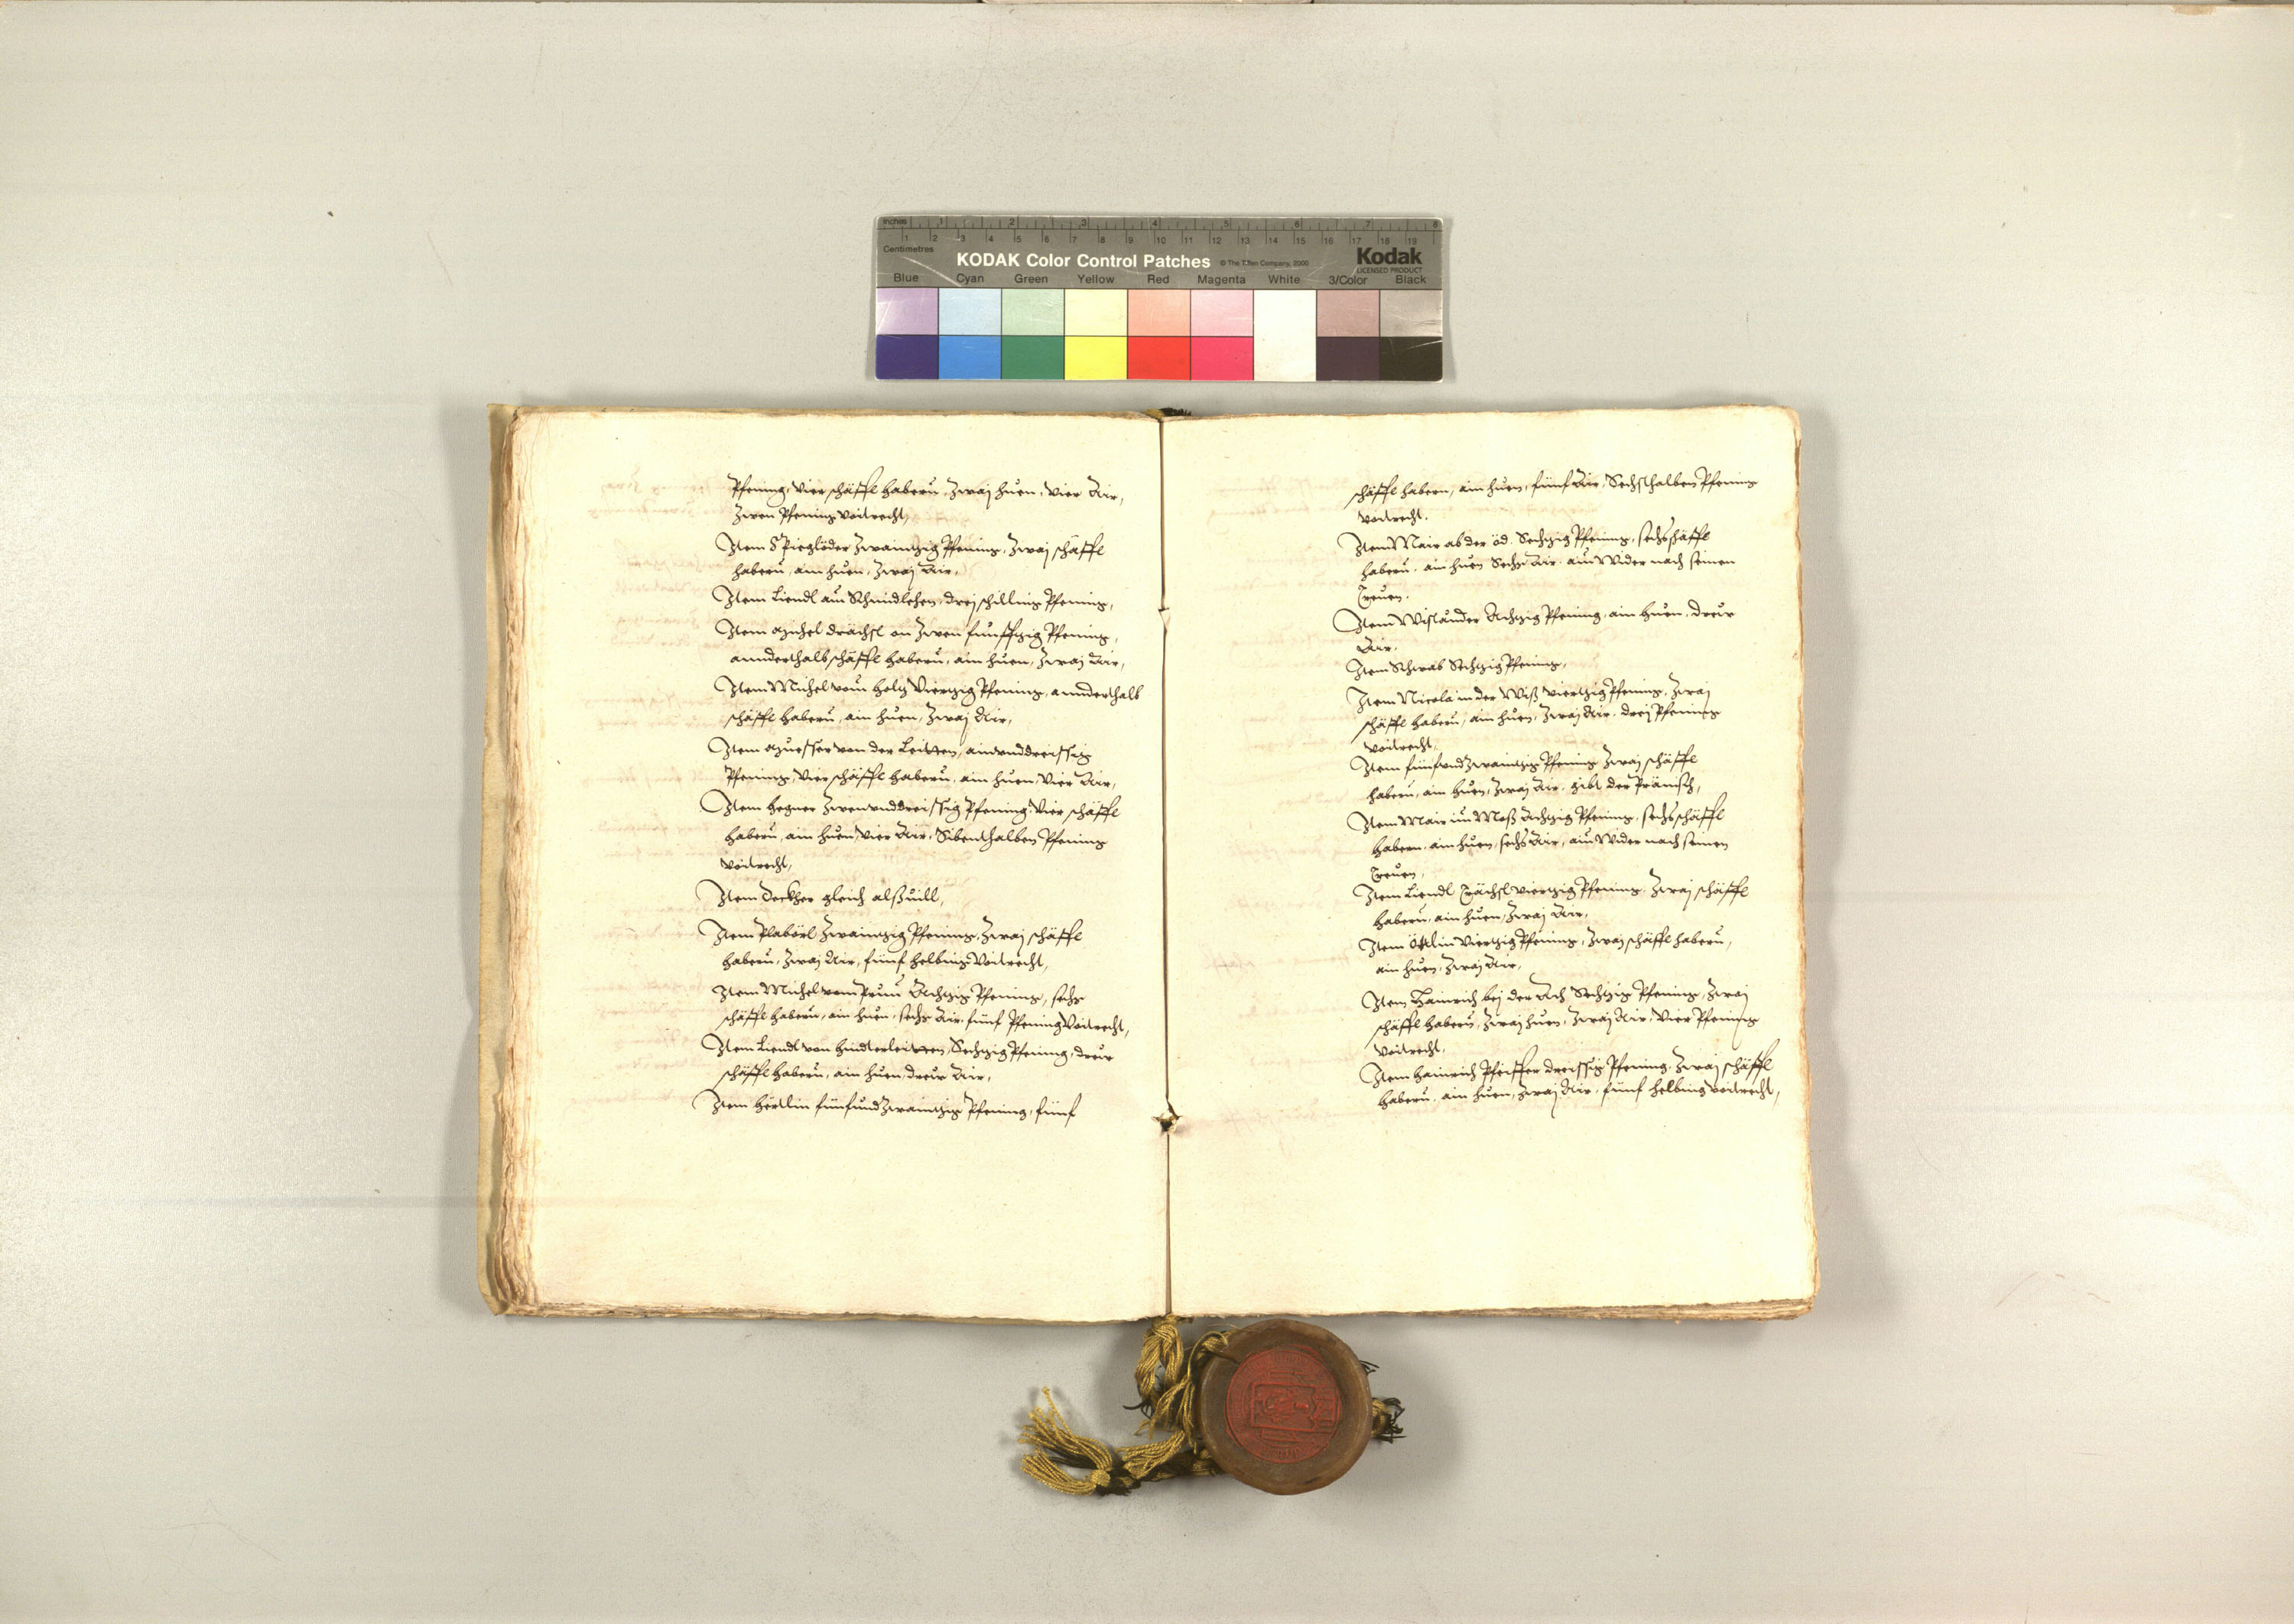 inches 1 2 3 4 5 6 7 8
1 2 3 4 5 6 7 8 9 10 11 12 13 14 15 16 17 18 19
Centimetres
KODAK Color Control Patches © The Tiffen Company, 2000 Kodak
LICENSED PRODUCT
Blue Cyan Green Yellow Red Magenta White 3/Color Black
Pfening, Vier schäffl habern, Zwaj huen, Vier Air,
Zwen Pfening Voitrecht,
Item Zwaintzig Pfening, Zwaj schäffl
habern, ain huen, Zwaj Air,
Item Liendl am Schmidlehen, drej schilling Pfening,
Item drächsl on Zwen funfftzig Pfening,
annderthalb schäffl habern, ain huen, Zwaj Air,
Item Michel vom holtz Viertzig Pfening, annderthalb
schäffl habern, ain huen, Zwaj Air,
Item von der Leitten, ainunddreissig
Pfening, Vier schäffl habern, ain huen, Vier Air,
Item hegner Zwenunddreissig Pfening, Vier schäffl
habern, ain huen, Vier Air, Sibenthalben Pfening
Voitrecht,
Item deckher gleich alßuill,
Item Plabörl Zwaintzig Pfening, Zwaj schäffl
habern, Zwaj Air, fünf helbing Voitrecht,
Item Michel vom Prun Achtzig Pfening, sechs
schäffl habern, ain huen, sechs Air, fünf Pfening Voitrecht,
Item Liendl von hinderleitten, Sechtzig Pfening, dreur
schäffl habern, ain huen, dreur Air,
Item hertlin fünfundZwaintzig Pfening, fünf
schäffl habern, ain huen, fünf Air, Sechsthalben Pfening
Voitrecht.
Item Mair ab der öd, Sechtzig Pfening, sechs schäffl
habern, ain huen Sechs Air, ain Wider nach seinen
Treuen.
Item Wislander Achtzig Pfening, ain huen, dreur
Air.
Item Schwab Sechtzig Pfening,
Item Nicola in der Wiß Viertzig Pfening, Zwaj
schäffl habern, ain huen, Zwaj Air, drej Pfening
Voitrecht,
Item fünfundZwaintzig Pfening Zwaj schäffl
habern, ain huen, Zwaj Air, gibt der
Item Mair im Moß Achtzig Pfening, sechs schäffl
habern, ain huen, sechs Air, ain Wider nach seinen
Treuen,
Item Liendl Trächsl Viertzig Pfening, Zwaj schäffl
habern, ain huen, Zwaj Air,
Item Öttlin Viertzig Pfening, Zwaj schäffl habern,
ain huen, Zwaj Air,
Item Hainrich bej der Ach Sechtzig Pfening, Zwaj
schäffl habern, Zwaj huen, Zwaj Air, Vier Pfening
Voitrecht,
Item Hainrich Pfeiffer dreissig Pfening, Zwaj schäffl
habern, ain huen, Zwaj Air, fünf helbing Voitrecht,